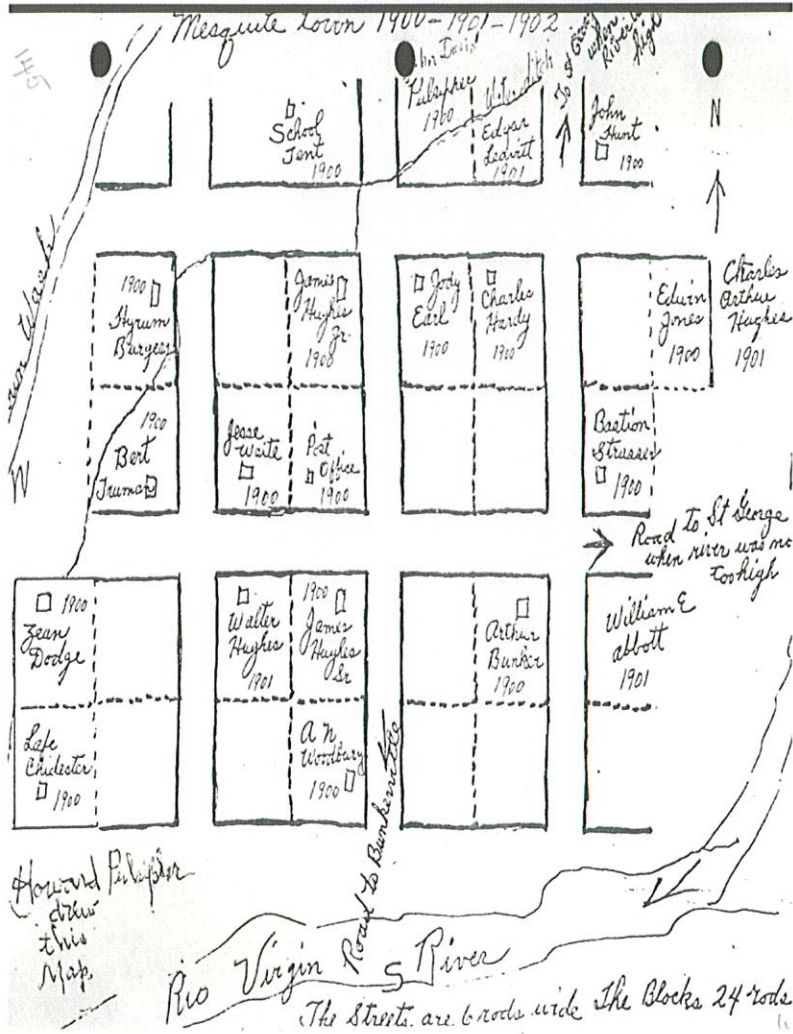 Mesquite Town 1900-1901-1902
To St George
when
River is
high
John David
Pulsipher
1900
Water ditch
Edgar
Leavitt
1901
School
Tent
1900
John
Hunt
1900
N
Wash
1900
Hyrum
Burgess
James
Hughes
Jr.
1900
Jody
Earl
1900
Charles
Hardy
1900
Edwin
Jones
1900
Charles
Arthur
Hughes
1901
1900
Bert
Truman
Jesse
Waite
1900
Post
Office
1900
Bastion
Strasser
1900
W
Road to St George
when river was no
too high
1900
Zean
Dodge
Walter
Hughes
1901
1900
James
Hughes
Sr
Arthur
Bunker
1900
William E
abbott
1901
Lafe
Chidester
1900
A N
Woodbury
1900
Road to Bunkerville
Howard Pulsipher
drew
this
Map.
Rio Virgin River
S
The Streets are 6 rods wide The Blocks 24 rods